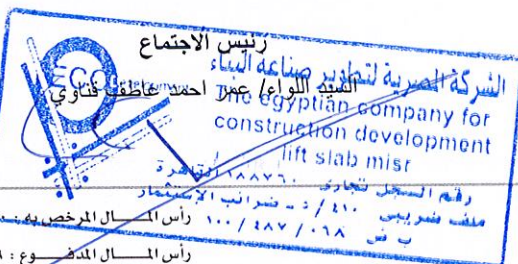 رئيس الاجتماع
السيد اللواء/ عمر احمد عاطف قناوي
الشركة المصرية لتطوير صناعة البناء
The egyptian company for
construction development
lift slab misr
رقم السجل تجارى ١٨٨٧٦٠ القاهرة
ملف ضريبى ٤١٠ / ذ - ضرائب الاستثمار
ب ض ٠١٨ / ٤٨٧ / ١٠٠
رأس المال المرخص به :
رأس المال المدفوع :